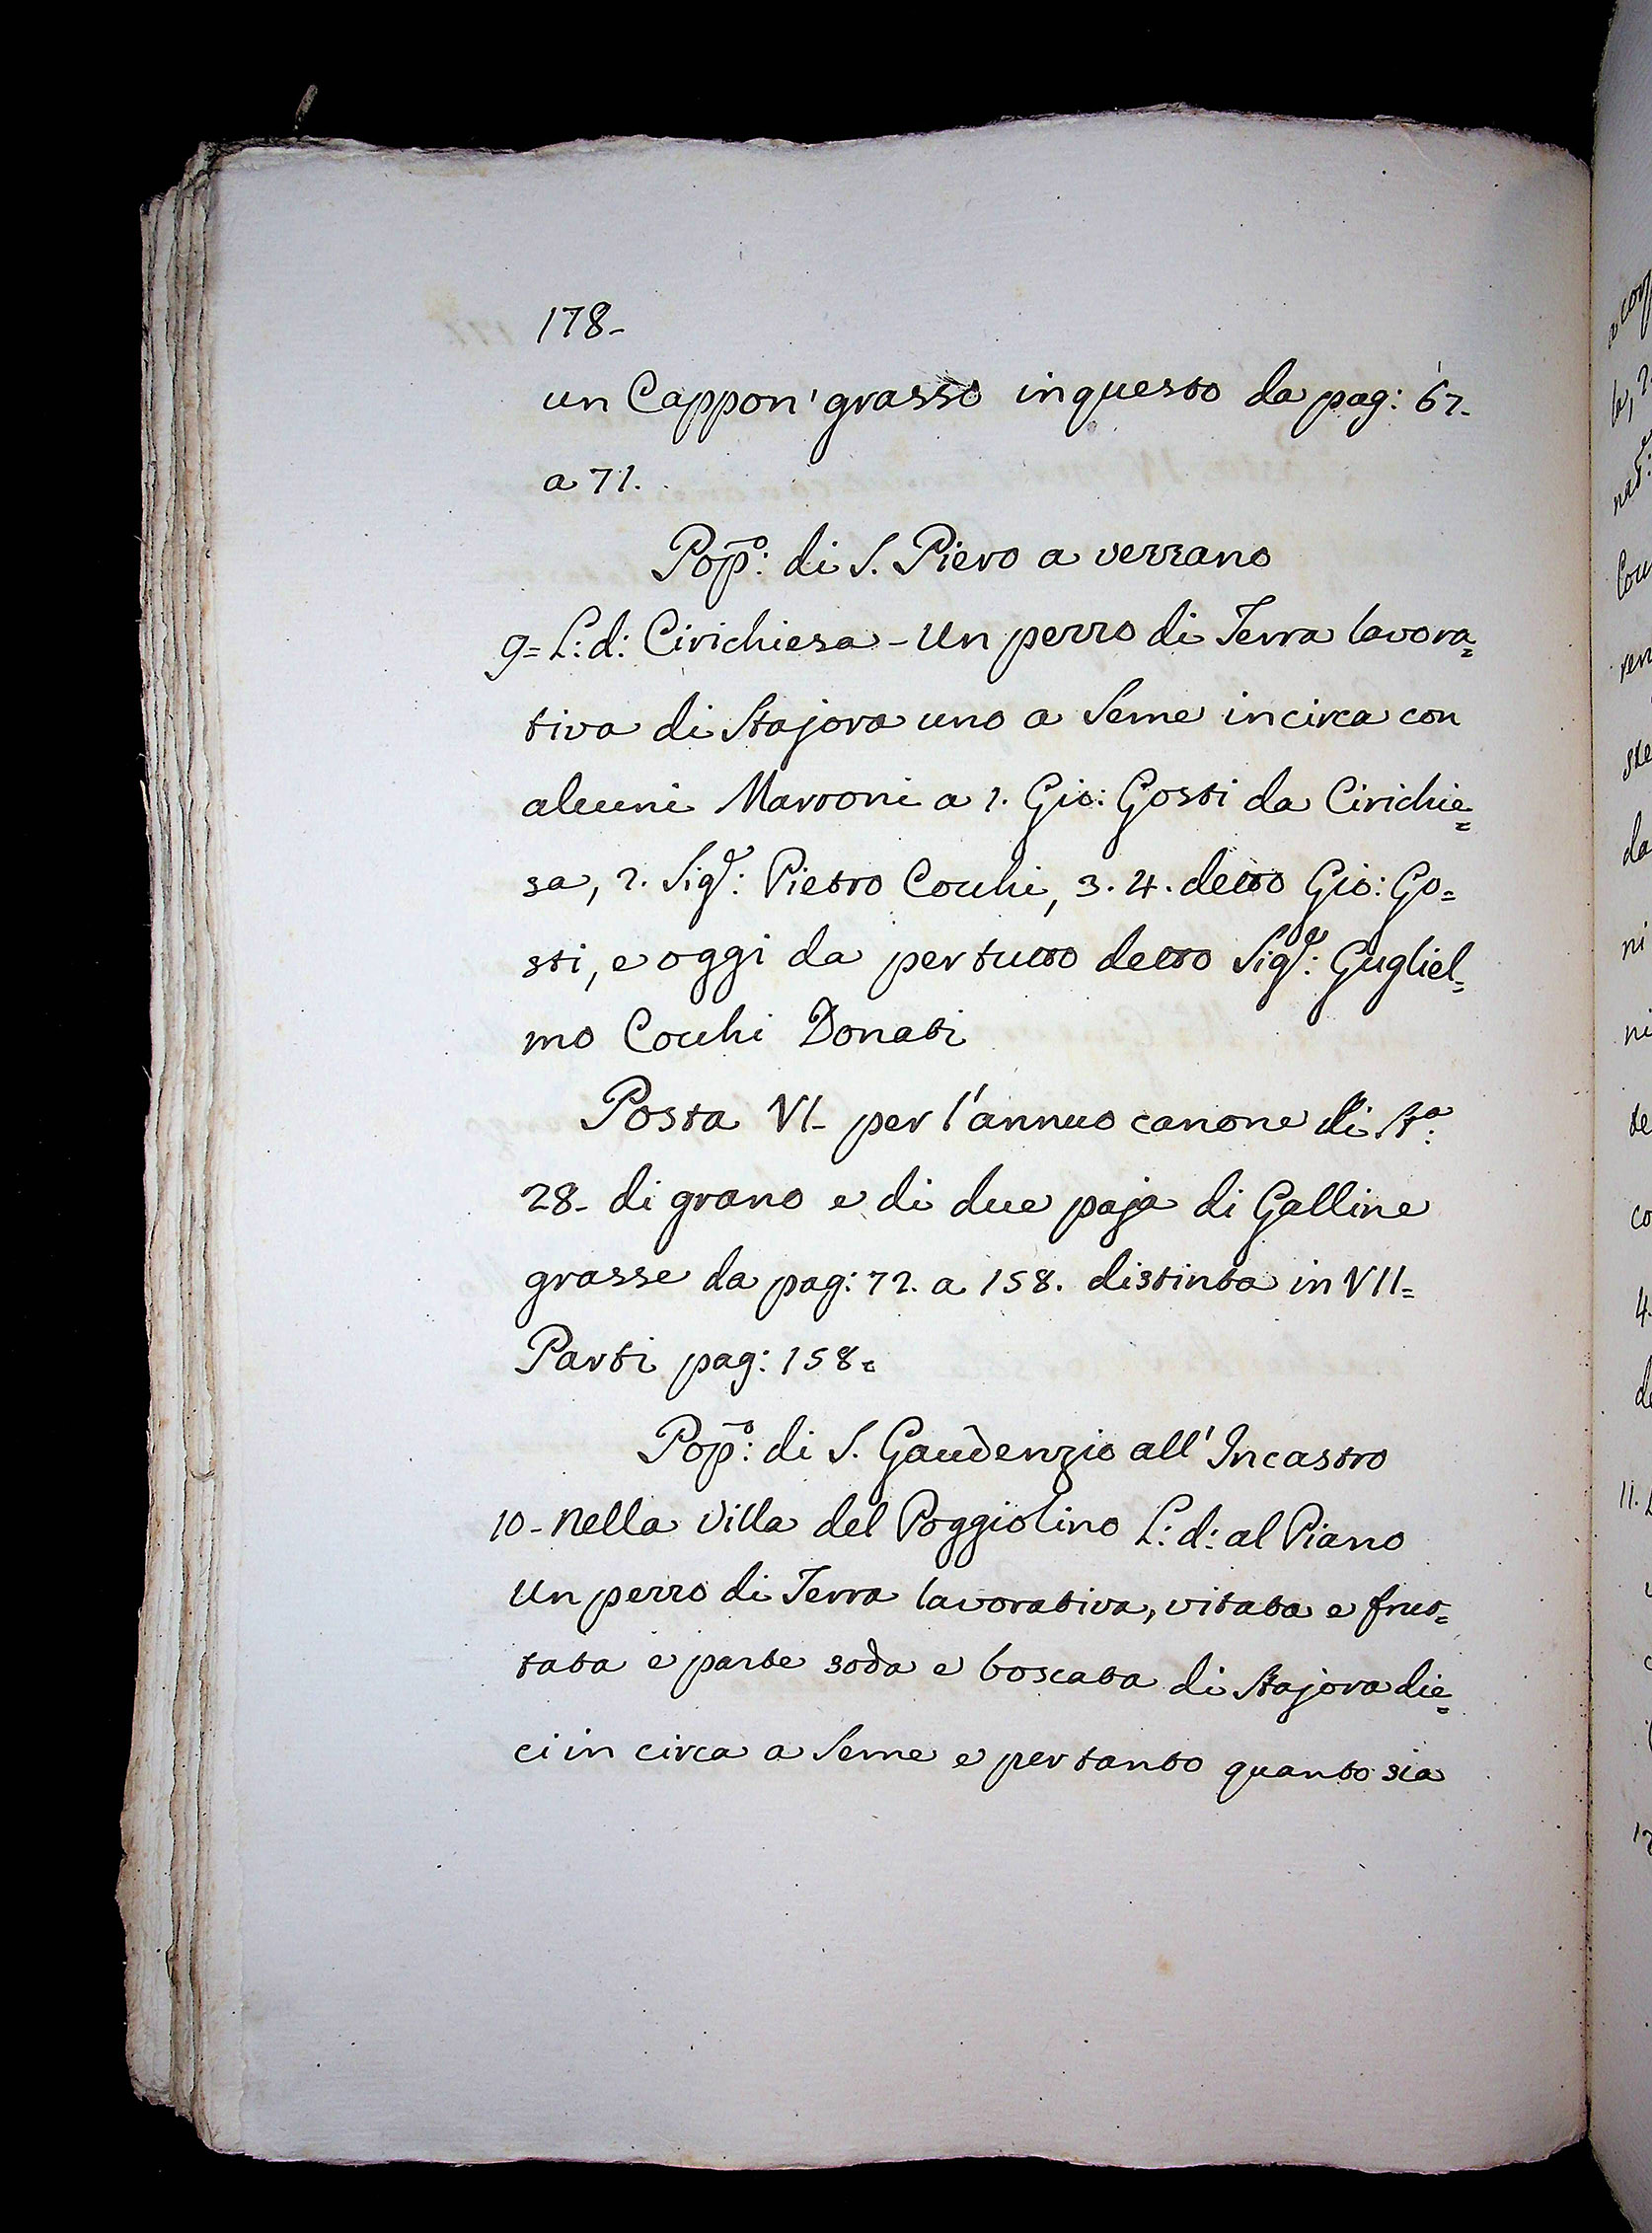 178-
un Cappon' grasso in questo da pag: 67-
a 71.
Pop̄o: di S. Piero a verrano
9= L: d: Cirichiesa - Un pezzo di Terra lavora=
tiva di Stajora uno a Seme incirca con
alcuni Marroni a 1. Gio: Gosti da Cirichie=
sa, 2. Sigr: Pietro Cocchi, 3. 4. detto Gio: Go=
sti, e oggi da per tutto detto Sigr: Gugliel=
mo Cocchi Donati
Posta VI- per l'annuo canone di Sta:
28- di grano e di due paja di Galline
grasse da pag: 72. a 158. distinta in VII=
Parti pag: 158=
Pop̄o: di S. Gaudenzio all' Incastro
10- Nella Villa del Poggiolino L: d: al Piano
Un pezzo di Terra lavorativa, vitata e frut=
tata e parte soda e boscata di Stajora die=
ci in circa a Seme e per tanto quanto sia